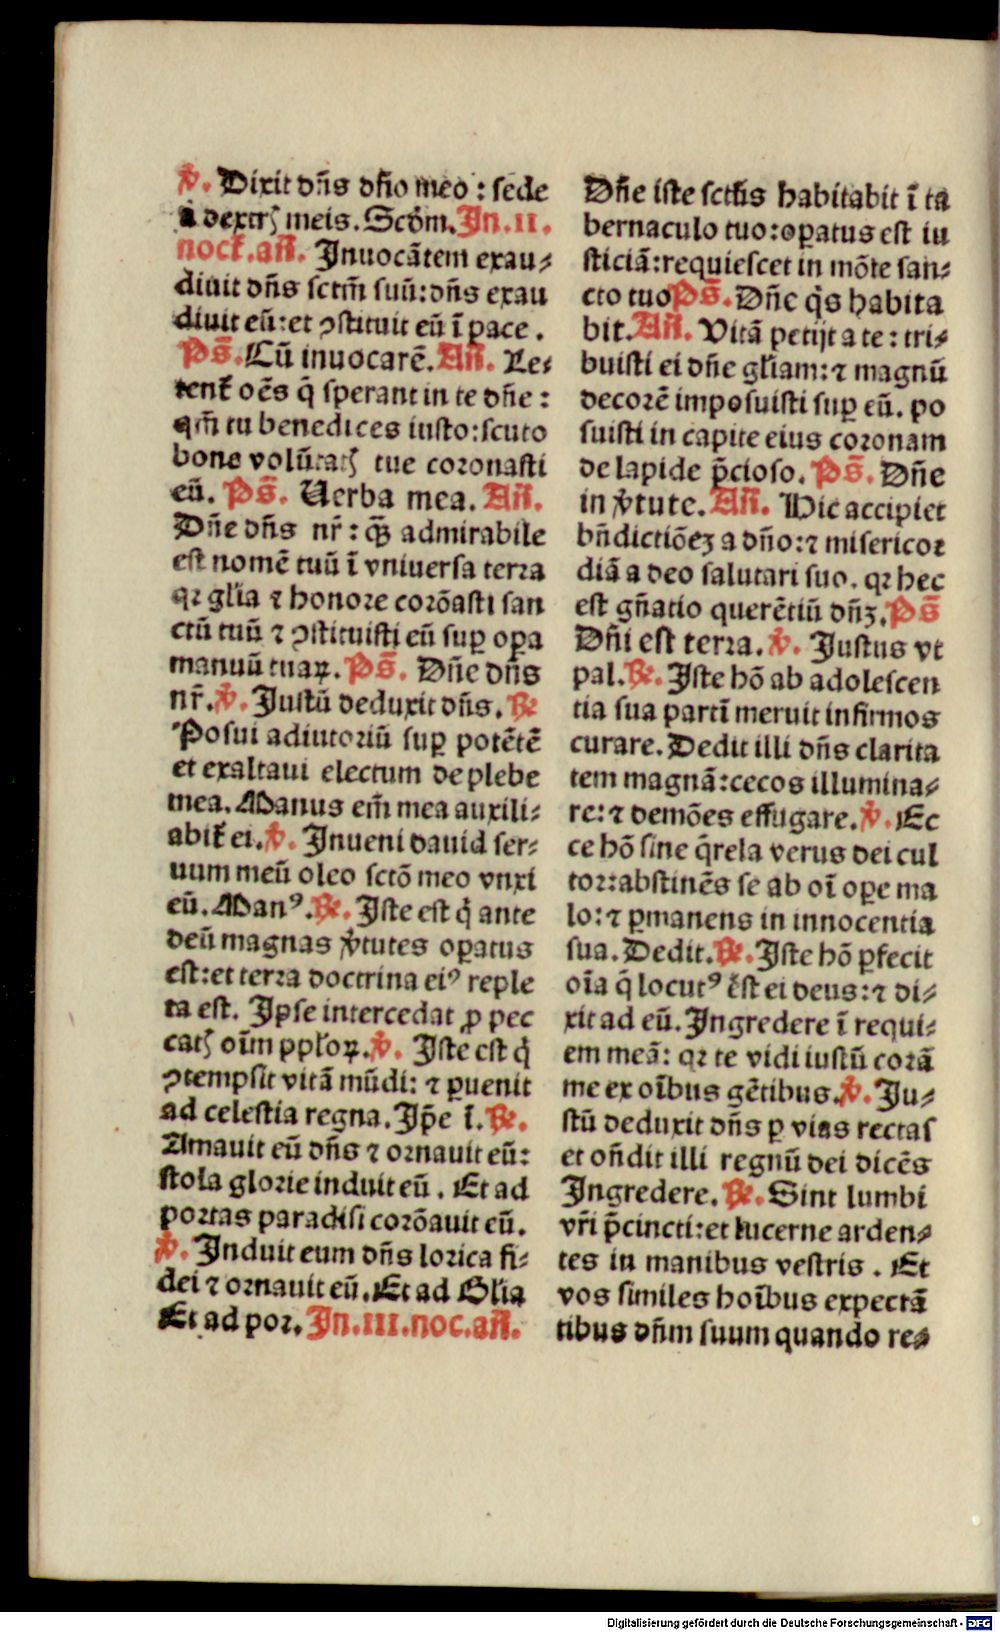 ℣. Dixit dñs dño meo : sede
a dextrꝭ meis. Scḋm. Jn.II.
noct̄.añ. Jnuocātem exau⸗
diuit dñs sctm̄ suū: dñs exau
diuit eū: et ꝯstituit eū ī pace .
Ps̄. Cū inuocarē. Añ. Le⸗
tent̄ oēs q̄ sperant in te dñe :
qm̄ tu benedices iusto: scuto
bone volūtatꝭ tue coronasti
eū. Ps̄. Uerba mea. Añ.
Dñe dñs nr̄ : qꝫ admirabile
est nomē tuū ī vniuersa terra
qꝛ gl̄ia ⁊ honore corōasti san
ctū tuū ⁊ ꝯstituisti eū suꝑ oꝑa
manuū tuaꝝ. Ps̄. Dñe dñs
nr̄. ℣. Justū deduxit dñs. ℟
Posui adiutoriū suꝑ potētē
et exaltaui electum de plebe
mea. Manus em̄ mea auxili⸗
abit̄ ei. ℣. Jnueni dauid ser⸗
uum meū oleo sctō meo vnxi
eū. Manꝰ. ℟. Jste est q̇ ante
deū magnas v̇tutes oꝑatus
est: et terra doctrina eiꝰ reple
ta est. Jpse intercedat ꝓ pec
catꝭ oīm ppl̄oꝝ. ℣. Jste est q̇
ꝯtempsit vitā mūdi: ⁊ ꝑuenit
ad celestia regna. Jp̄e ī. ℟.
Amauit eū dñs ⁊ ornauit eū:
stola glorie induit eū . Et ad
portas paradisi corōauit eū.
℣. Jnduit eum dñs lorica fi⸗
dei ⁊ ornauit eū. Et ad Gl̄ia
Et ad por. Jn.III.noc.añ.
Dñe iste sctūs habitabit ī ta
bernaculo tuo: oꝑatus est iu
sticiā: requiescet in mōte san⸗
cto tuo Ps̄. Dñe q̇s habita
bit. Añ. Vitā petijt a te : tri⸗
buisti ei dñe gl̄iam: ⁊ magnū
decorē imposuisti suꝑ eū. po
suisti in capite eius coronam
de lapide p̄cioso. Ps̄. Dñe
in v̇tute. Añ. Hic accipiet
bñdictiōeꝫ a dño: ⁊ misericor
diā a deo salutari suo. qꝛ hec
est gñatio querētiū dñꝫ. Ps̄
Dñi est terra. ℣. Justus vt
pal. ℟. Jste hō ab adolescen
tia sua partī meruit infirmos
curare. Dedit illi dñs clarita
tem magnā: cecos illumina⸗
re: ⁊ demōes effugare. ℣. Ec
ce hō sine q̄rela verus dei cul
tor: abstinēs se ab oī oꝑe ma
lo: ⁊ ꝑmanens in innocentia
sua. Dedit. ℟. Jste hō ꝑfecit
oīa q̄ locutꝰ est ei deus: ⁊ di⸗
xit ad eū. Jngredere ī requi⸗
em meā: qꝛ te vidi iustū corā
me ex oībus gētibus. ℣. Ju⸗
stū deduxit dñs ꝑ vias rectas
et oñdit illi regnū dei dicēs
Jngredere. ℟. Sint lumbi
vr̄i p̄cincti: et lucerne arden⸗
tes in manibus vestris . Et
vos similes hoībus expectā
tibus dñm suum quando re⸗
Digitalisierung gefördert durch die Deutsche Forschungsgemeinschaft - DFG